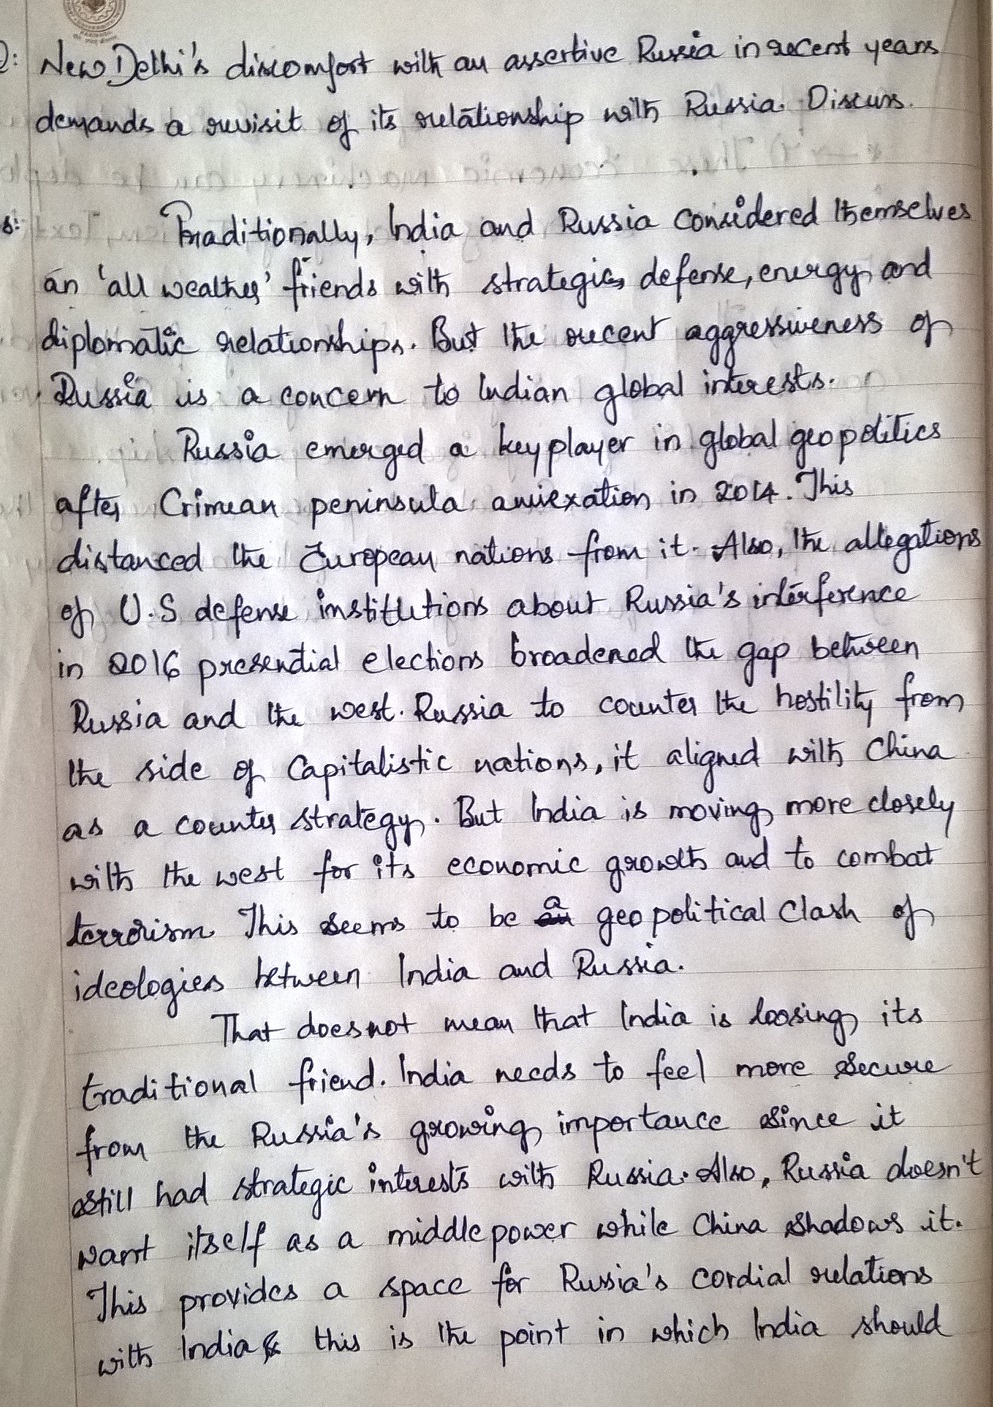 Q: New Delhi's discomfort with an assertive Russia in recent years
demands a revisit of its relationship with Russia. Discuss.
s: Traditionally, India and Russia considered themselves
an 'all weather' friends with strategic, defense, energy and
diplomatic relationships. But the recent aggressiveness of
Russia is a concern to Indian global interests.
Russia emerged a key player in global geopolitics
after Crimean peninsula annexation in 2014. This
distanced the European nations from it. Also, the allegations
of U.S defense institutions about Russia's interference
in 2016 presential elections broadened the gap between
Russia and the west. Russia to counter the hostility from
the side of Capitalistic nations, it aligned with China
as a counter strategy. But India is moving more closely
with the west for its economic growth and to combat
terrorism. This seems to be a geo political clash of
ideologies between India and Russia.
That does not mean that India is loosing its
traditional friend. India needs to feel more secure
from the Russia's growing importance since it
still had strategic interests with Russia. Also, Russia doesn't
want itself as a middle power while China shadows it.
This provides a space for Russia's cordial relations
with India & this is the point in which India should